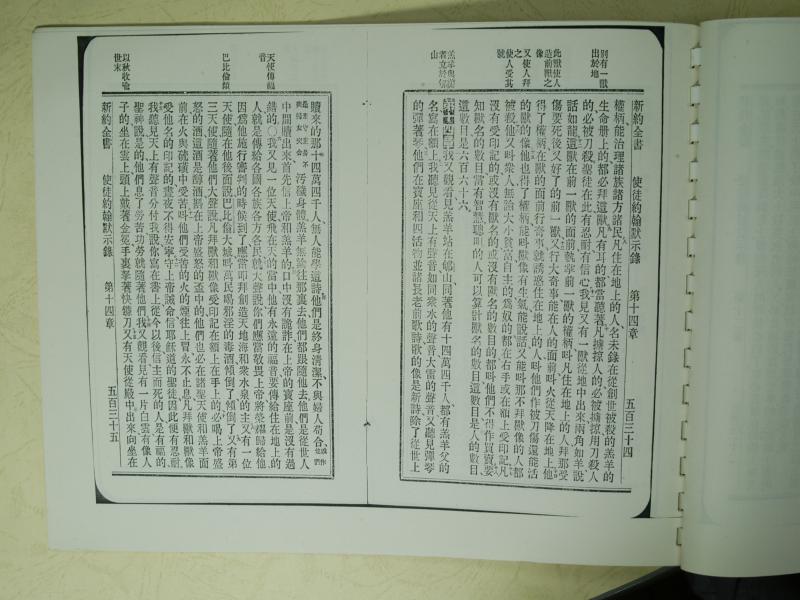 別有一獸
出於地
此獸使人
造前獸之
像
又使人拜
之
使人受其
號
羔羊與蒙
者立於郇
山
新約全書 使徒約翰默示錄 第十四章 五百三十四
權柄能治理諸族諸方諸民凡住在地上的人名未錄在從創世被殺的羔羊的
生命册上的都必拜這獸凡有耳的都當聽著凡擄掠人的必被擄掠用刀殺人
的必被刀殺聖徒在此有忍耐有信心我見又有一獸從地中出來兩角如羊說
話如龍這獸在前一獸的面前執掌前一獸的權柄叫凡住在地上的人拜那受
傷要死後又好了的前一獸又行大奇事能在人的面前叫火從天降在地上他
得了權柄在獸的面前行奇事就誘惑住在地上的人叫他們作被刀傷還能活
的獸的像他也得了權柄能叫獸像有生氣能說話又能叫那不拜獸像的人都
被殺他又叫衆人無論大小貧富自主的為奴的都在右手或在額上受印記凡
沒有受印記的或沒有獸名的或沒有獸名的數目的都叫他們不得作買賣要
知獸名的數目當有智慧聰明的人可以算計獸名的數目這數目是人的數目
這數目是六百六十六
我又觀看見羔羊站在郇山同著他有十四萬四千人都有羔羊父的
名寫在額上我聽見從天上有聲音如同衆水的聲音大雷的聲音又聽見彈琴
的彈著琴他們在寶座和四活物並諸長老前歌詩歌的像是新詩除了從世上
天使傳福
音
巴比倫傾
以秋收喻
世末
贖來的那十四萬四千人無人能學這詩他們是終身清潔不與婦人苟合
汚穢身體羔羊無論往那裏去他們都跟隨他去他們是從世人
中間贖出來首先歸上帝和羔羊的口中沒有詭詐在上帝的寶座前是沒有過
錯的○我又見一位天使飛在天的當中他有永遠的福音要傳給住在地上的
人就是傳給各國各族各方各民就大聲說你們應當敬畏上帝將榮耀歸給他
因爲他施行審判的時候到了應當叩拜創造天地海和衆水泉的主又有一位
天使隨在他後面說巴比倫大城叫萬民喝邪淫的毒酒傾倒了傾倒了又有第
三天使隨著他們大聲說凡拜獸和獸像受印記在額上在手上的必喝上帝盛
怒的酒這酒是醇酒斟在上帝盛怒的盃中的他們也必在諸聖天使和羔羊面
前在火與硫磺中受苦叫他們受苦的火的煙往上冒永不止息凡拜獸和獸像
受他名的印記的晝夜不得安寧守上帝誡命信耶穌道的聖徒因此便有忍耐
我聽見天上有聲音分付我說你寫在書上從今以後信主而死的人是有福的
聖神說是的他們息了勞苦功勞就隨著他們我又觀看見有一片白雲有像人
子的坐在雲上頭上戴著金冕手裏拏著快鐮刀又有天使從殿中出來向坐在
新約全書 使徒約翰默示錄 第十四章 五百三十五